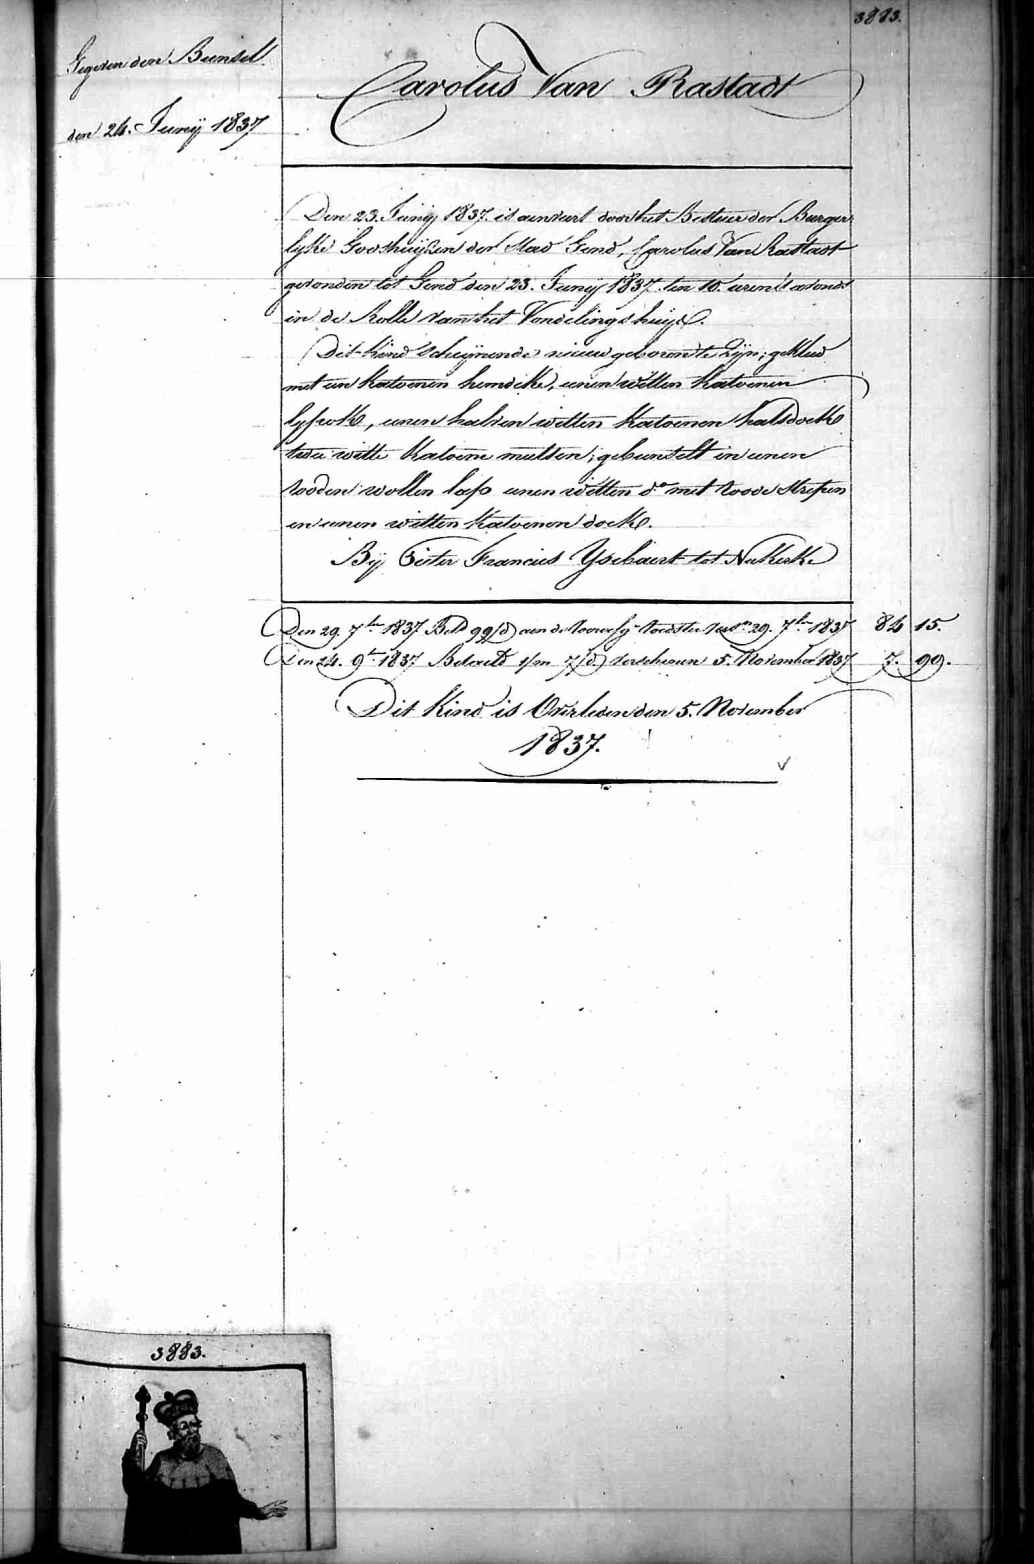 3883.
Gegeven den Bunsel
den 24. Junij 1837
Carolus Van Rastadt
Den 23. Junij 1837. is aenveert door het Bestier der Burger-
lyke Godshuijsen der Stad Gend, Carolus Van Rastadt
gevonden tot Gend den 23. Junij 1837. ten 10. uren 's avonds
in de Rolle van het Vondelingshuijs.
Dit kind scheijnende nieuw geboren te zijn; gekleed
met een katoenen hemdeke, eenen witten katoenen
lyfrok, eenen halven witten katoenen halsdoek
twee witte katoene mutsen; gebunselt in eenen
rooden wollen lap eenen witten do met roode strepen
en eenen witten katoenen doek.
Bij Pieter Francies Ysebaert tot Nukerke
Den 29. 7ber 1837 Bet. 99/d aen de voorsz. Voedster vers.en 29. 7ber 1837 84 15.
Den 24. 9ber 1837 Betaeld s/m 7/d verschenen 5. November 1837 7. 99.
Dit Kind is Overleden den 5. November
1837.
3883.